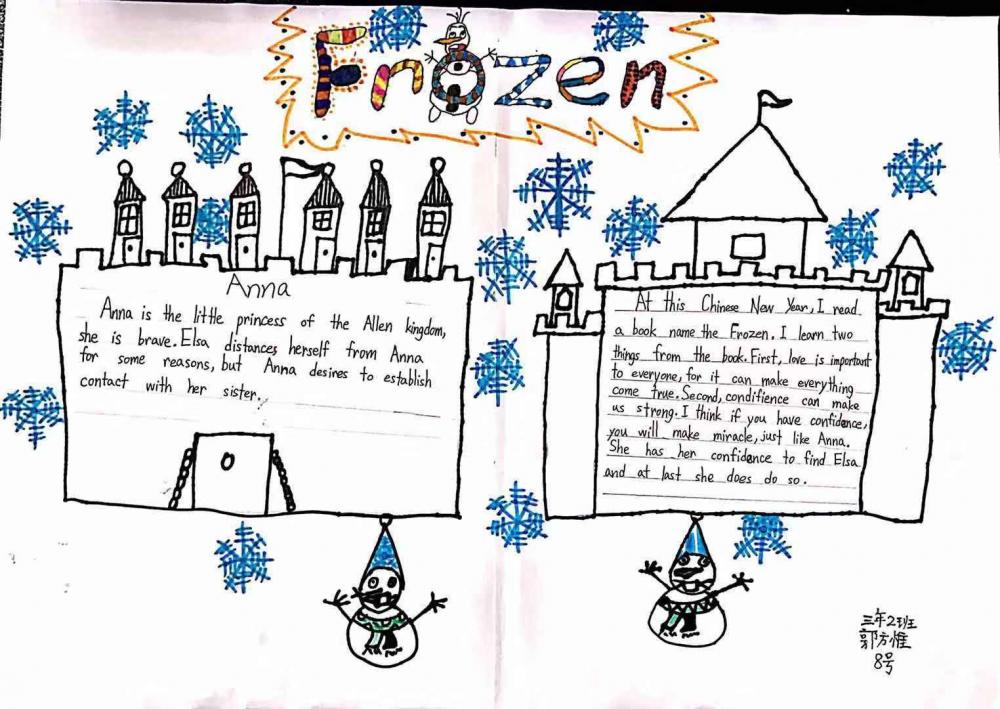 Frozen
Anna
Anna is the little princess of the Allen kingdom,
she is brave. Elsa distances herself from Anna
for some reasons, but Anna desires to establish
contact with her sister.
At this Chinese New Year, I read
a book name the Frozen. I learn two
things from the book. First, love is important
to everyone, for it can make everything
come true. Second, condifience can make
us strong. I think if you have confidence,
you will make miracle, just like Anna.
She has her confidence to find Elsa
and at last she does do so.
三年2班
郭方惟
8号